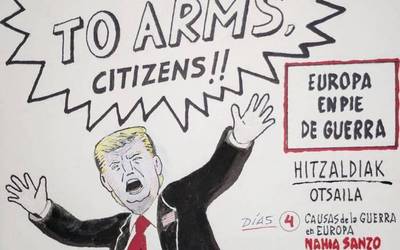 TO ARMS,
CITIZENS!!
EUROPA
EN PIE
DE GUERRA
HITZALDIAK
OTSAILA
DÍAS 4 CAUSAS de la GUERRA
en EUROPA
NAHIA SANZO